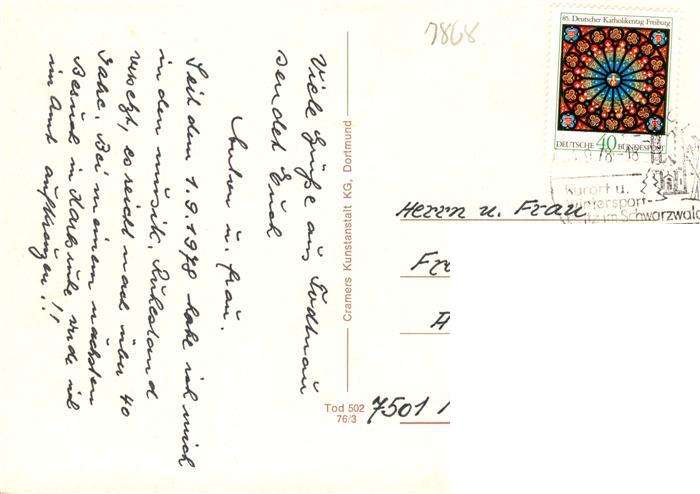 7868
85. Deutscher Katholikentag Freiburg
DEUTSCHE 40 BUNDESPOST
78-18
Kurort u.
Wintersport-
platz im Schwarzwald
Viele Grüße aus Todtnau
sendet Euch
Anton u. Frau.
Seit dem 1.9.1978 habe ich mich
in den musik. Ruhestand
versetzt, es reicht nach über 40
Jahre. Bei meinem nächsten
Besuch in Karlsruhe, werde ich
im Amt aufkreuzen!!
Cramers Kunstanstalt KG, Dortmund
Tod 502
76/3
Herrn u. Frau
Fr
7501